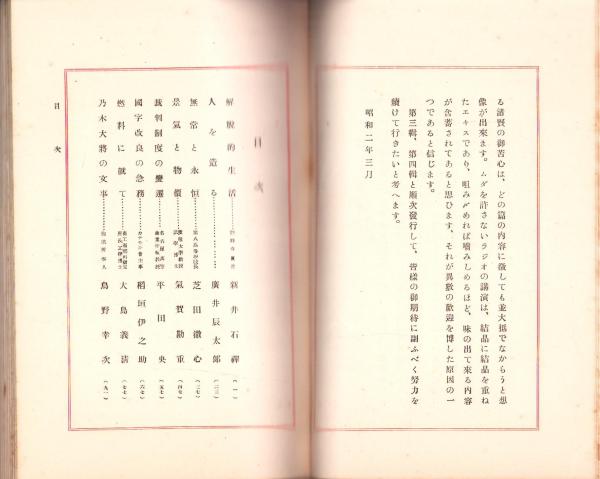 る諸賢の御苦心は、どの篇の内容に徵しても並大抵でなからうと想
像が出來ます。ムダを許さないラジオの講演は、結晶に結晶を重ね
たエキスであり、咀みしめれば噛みしめるほど、味の出て來る內容
が含蓄されてあると思ひます、それが異數の歡迎を博した原因の一
つであると信じます。
第三輯、第四輯と順次發行して、皆樣の御期待に副ふべく努力を
續けて行きたいと考へます。
昭和二年三月
目次
解脫的生活 新井石禪 (一)
人を造る 廣井辰太郎 (二三)
無常と永恒 芝田徹心 (三七)
景氣と物價 氣賀勘重 (四七)
裁判制度の變遷 平田央 (五七)
國字改良の急務 稻垣伊之助 (六七)
燃料に就て 大島義清 (七七)
乃木大將の文事 鳥野幸次 (九一)
目次